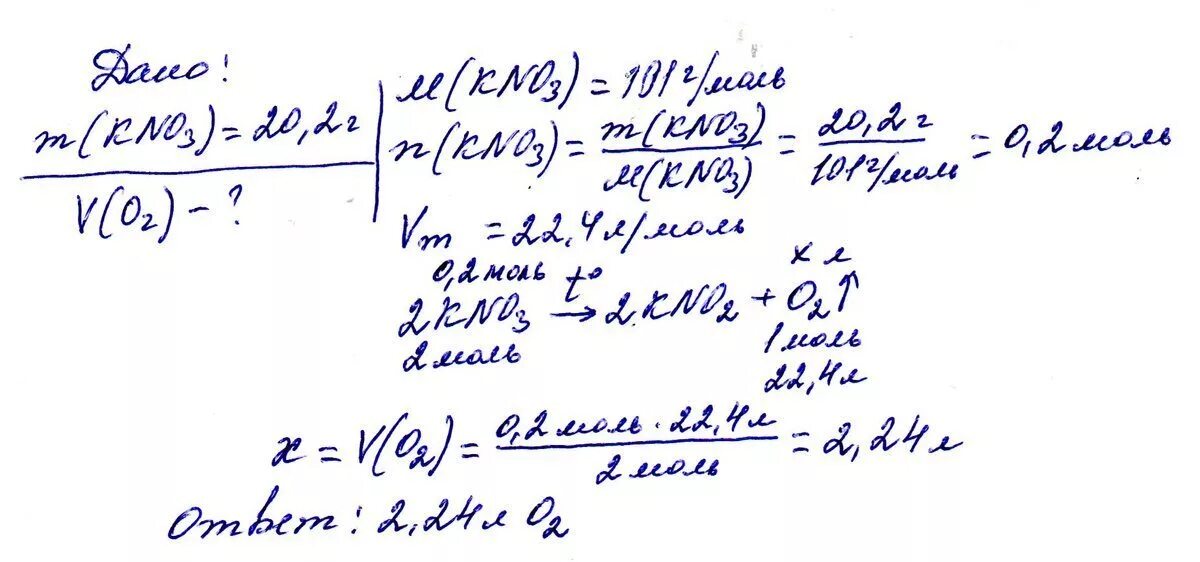 Дано:
m(KNO₃) = 20,2 г
V(O₂) - ?
M(KNO₃) = 101 г/моль
n(KNO₃) = m(KNO₃) / M(KNO₃) = 20,2 г / 101 г/моль = 0,2 моль
Vm = 22,4 л/моль
0,2 моль t° x л
2KNO₃ → 2KNO₂ + O₂↑
2 моль 1 моль
22,4 л
x = V(O₂) = 0,2 моль · 22,4 л / 2 моль = 2,24 л
Ответ: 2,24 л O₂